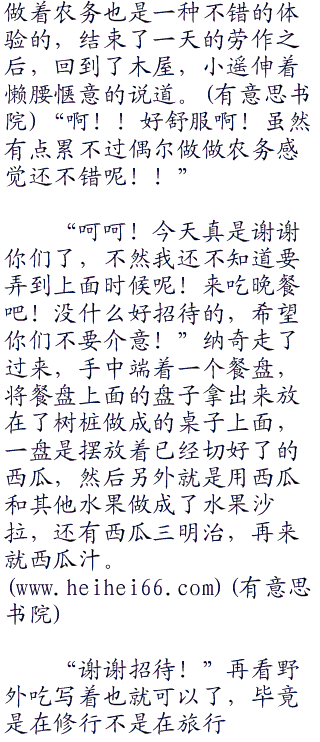 做着农务也是一种不错的体
验的，结束了一天的劳作之
后，回到了木屋，小遥伸着
懒腰惬意的说道。(有意思书
院)“啊！！好舒服啊！虽然
有点累不过偶尔做做农务感
觉还不错呢！！”
“呵呵！今天真是谢谢
你们了，不然我还不知道要
弄到上面时候呢！来吃晚餐
吧！没什么好招待的，希望
你们不要介意！”纳奇走了
过来，手中端着一个餐盘，
将餐盘上面的盘子拿出来放
在了树桩做成的桌子上面，
一盘是摆放着已经切好了的
西瓜，然后另外就是用西瓜
和其他水果做成了水果沙
拉，还有西瓜三明治，再来
就西瓜汁。
(www.heihei66.com)(有意思
书院)
“谢谢招待！”再看野
外吃写着也就可以了，毕竟
是在修行不是在旅行